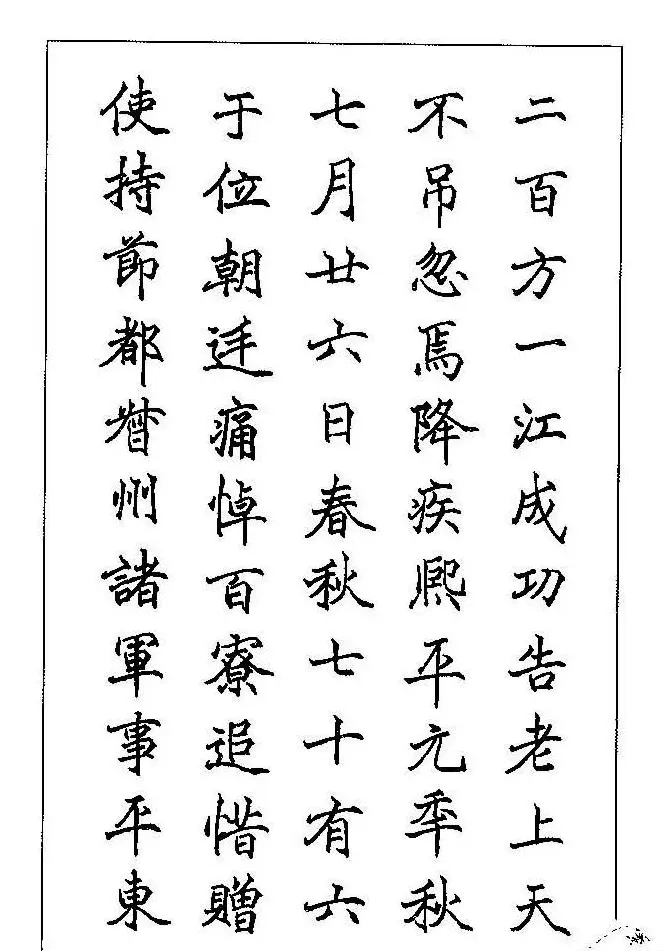 二百方一江成功告老上天
不吊忽焉降疾熙平元年秋
七月廿六日春秋七十有六
于位朝廷痛悼百寮追惜贈
使持節都督州諸軍事平東